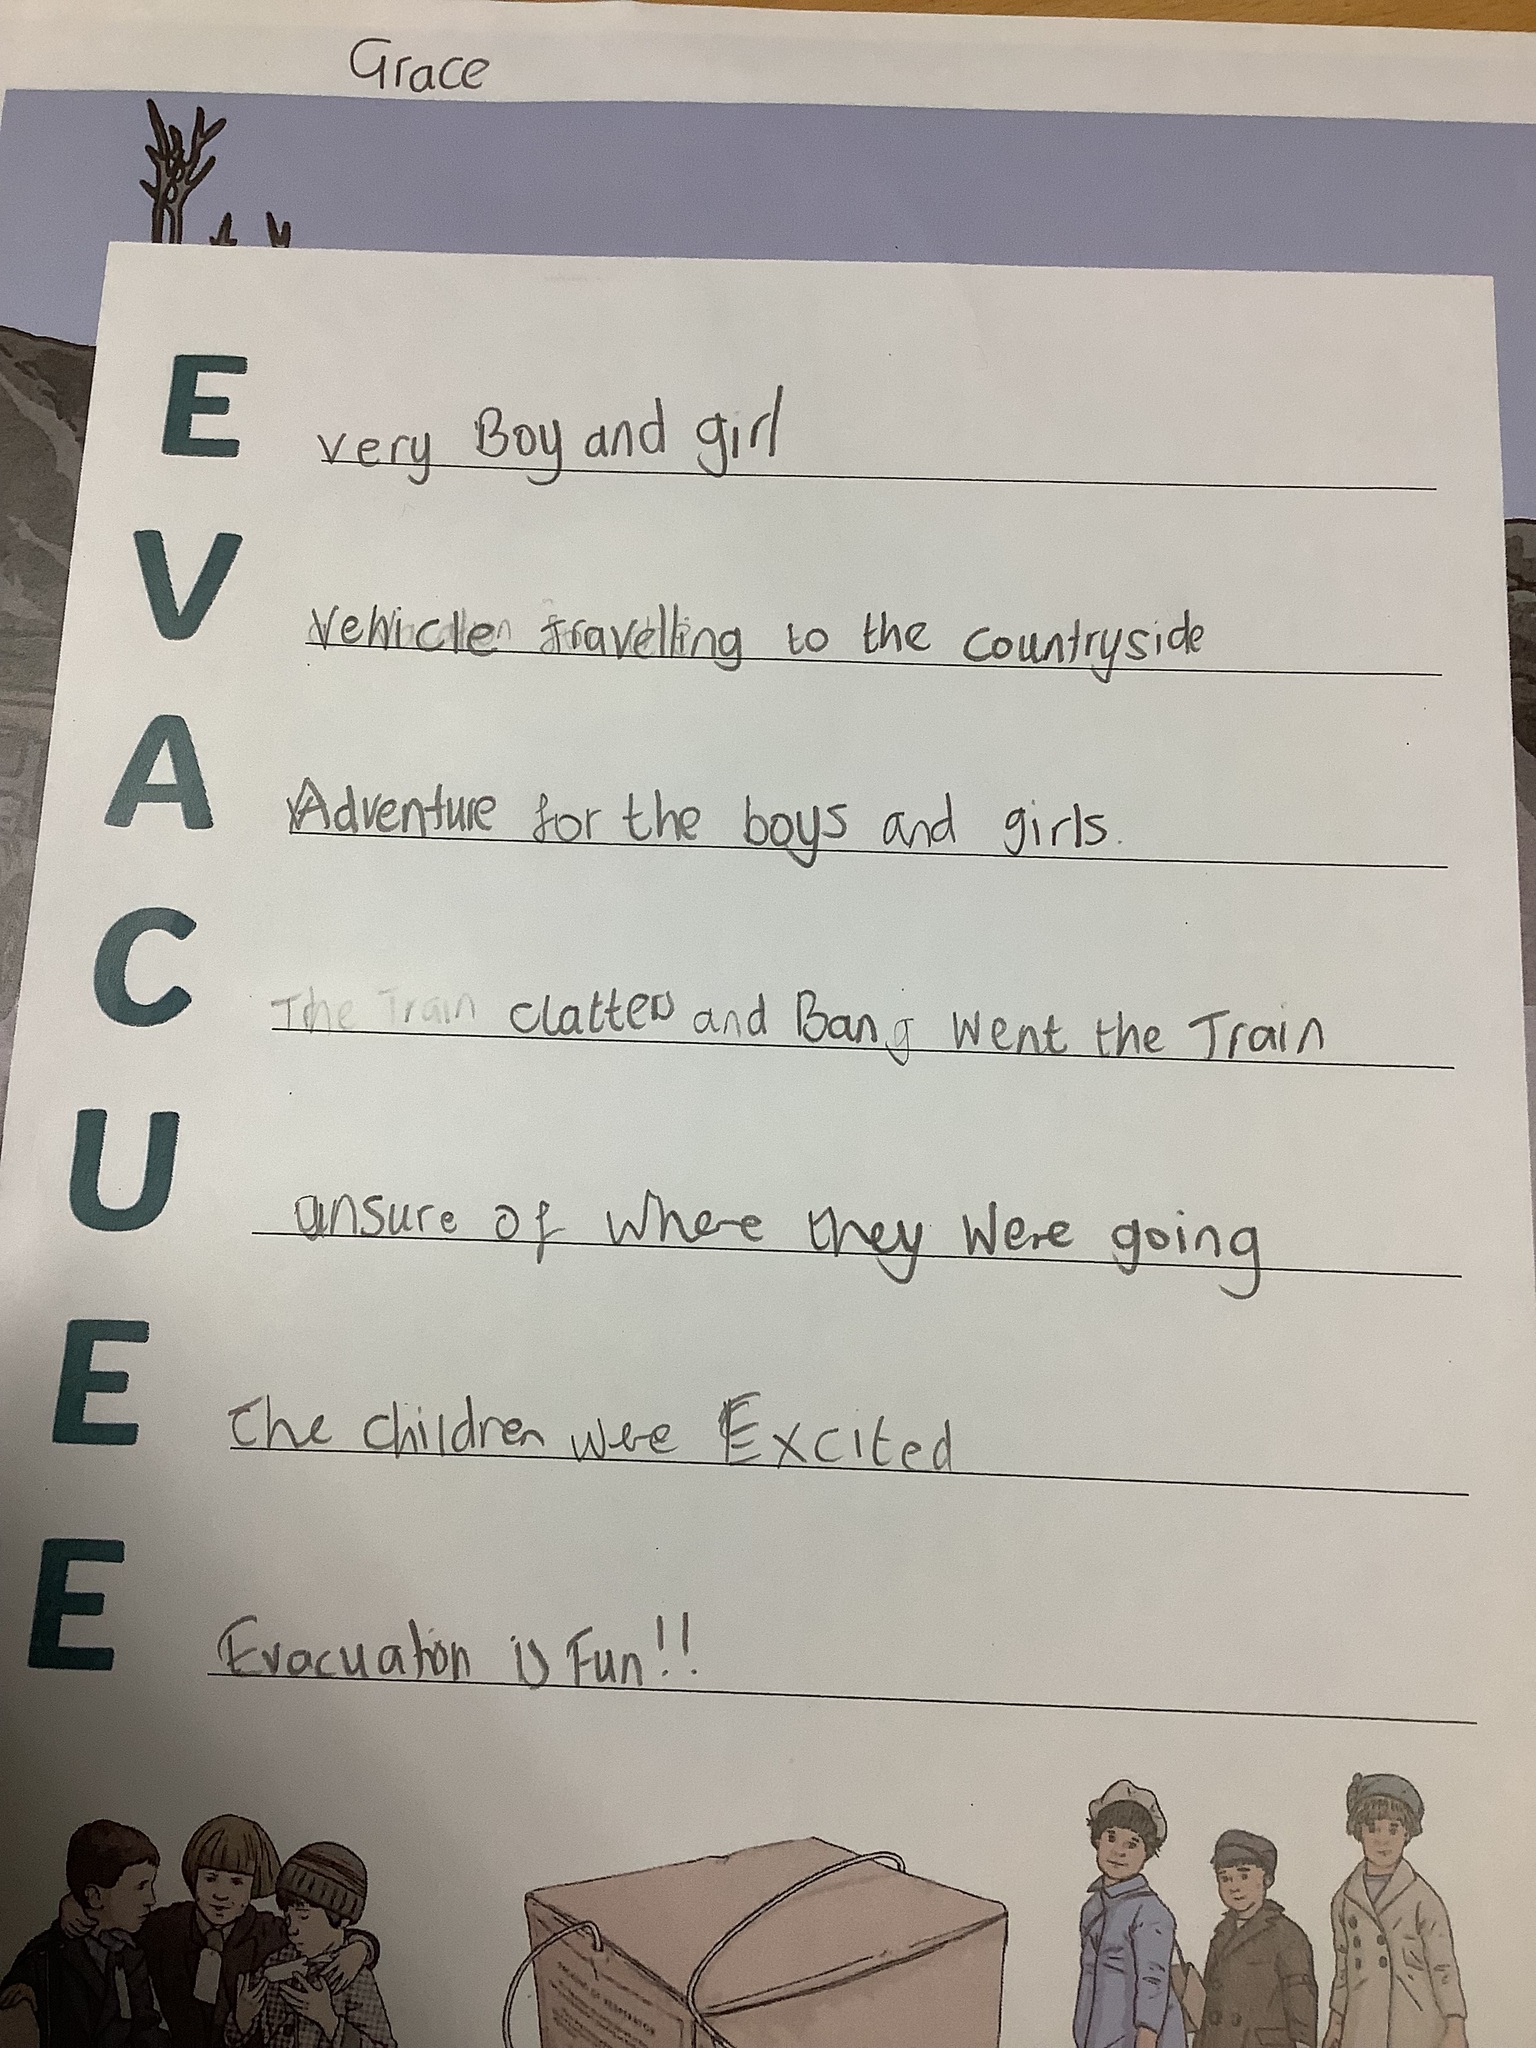 Grace
E very Boy and girl
V Vehicle travelling to the countryside
A Adventure for the boys and girls.
C The Train clatter and Bang went the Train
U unsure of where they were going
E The children were Excited
E Evacuation is Fun!!